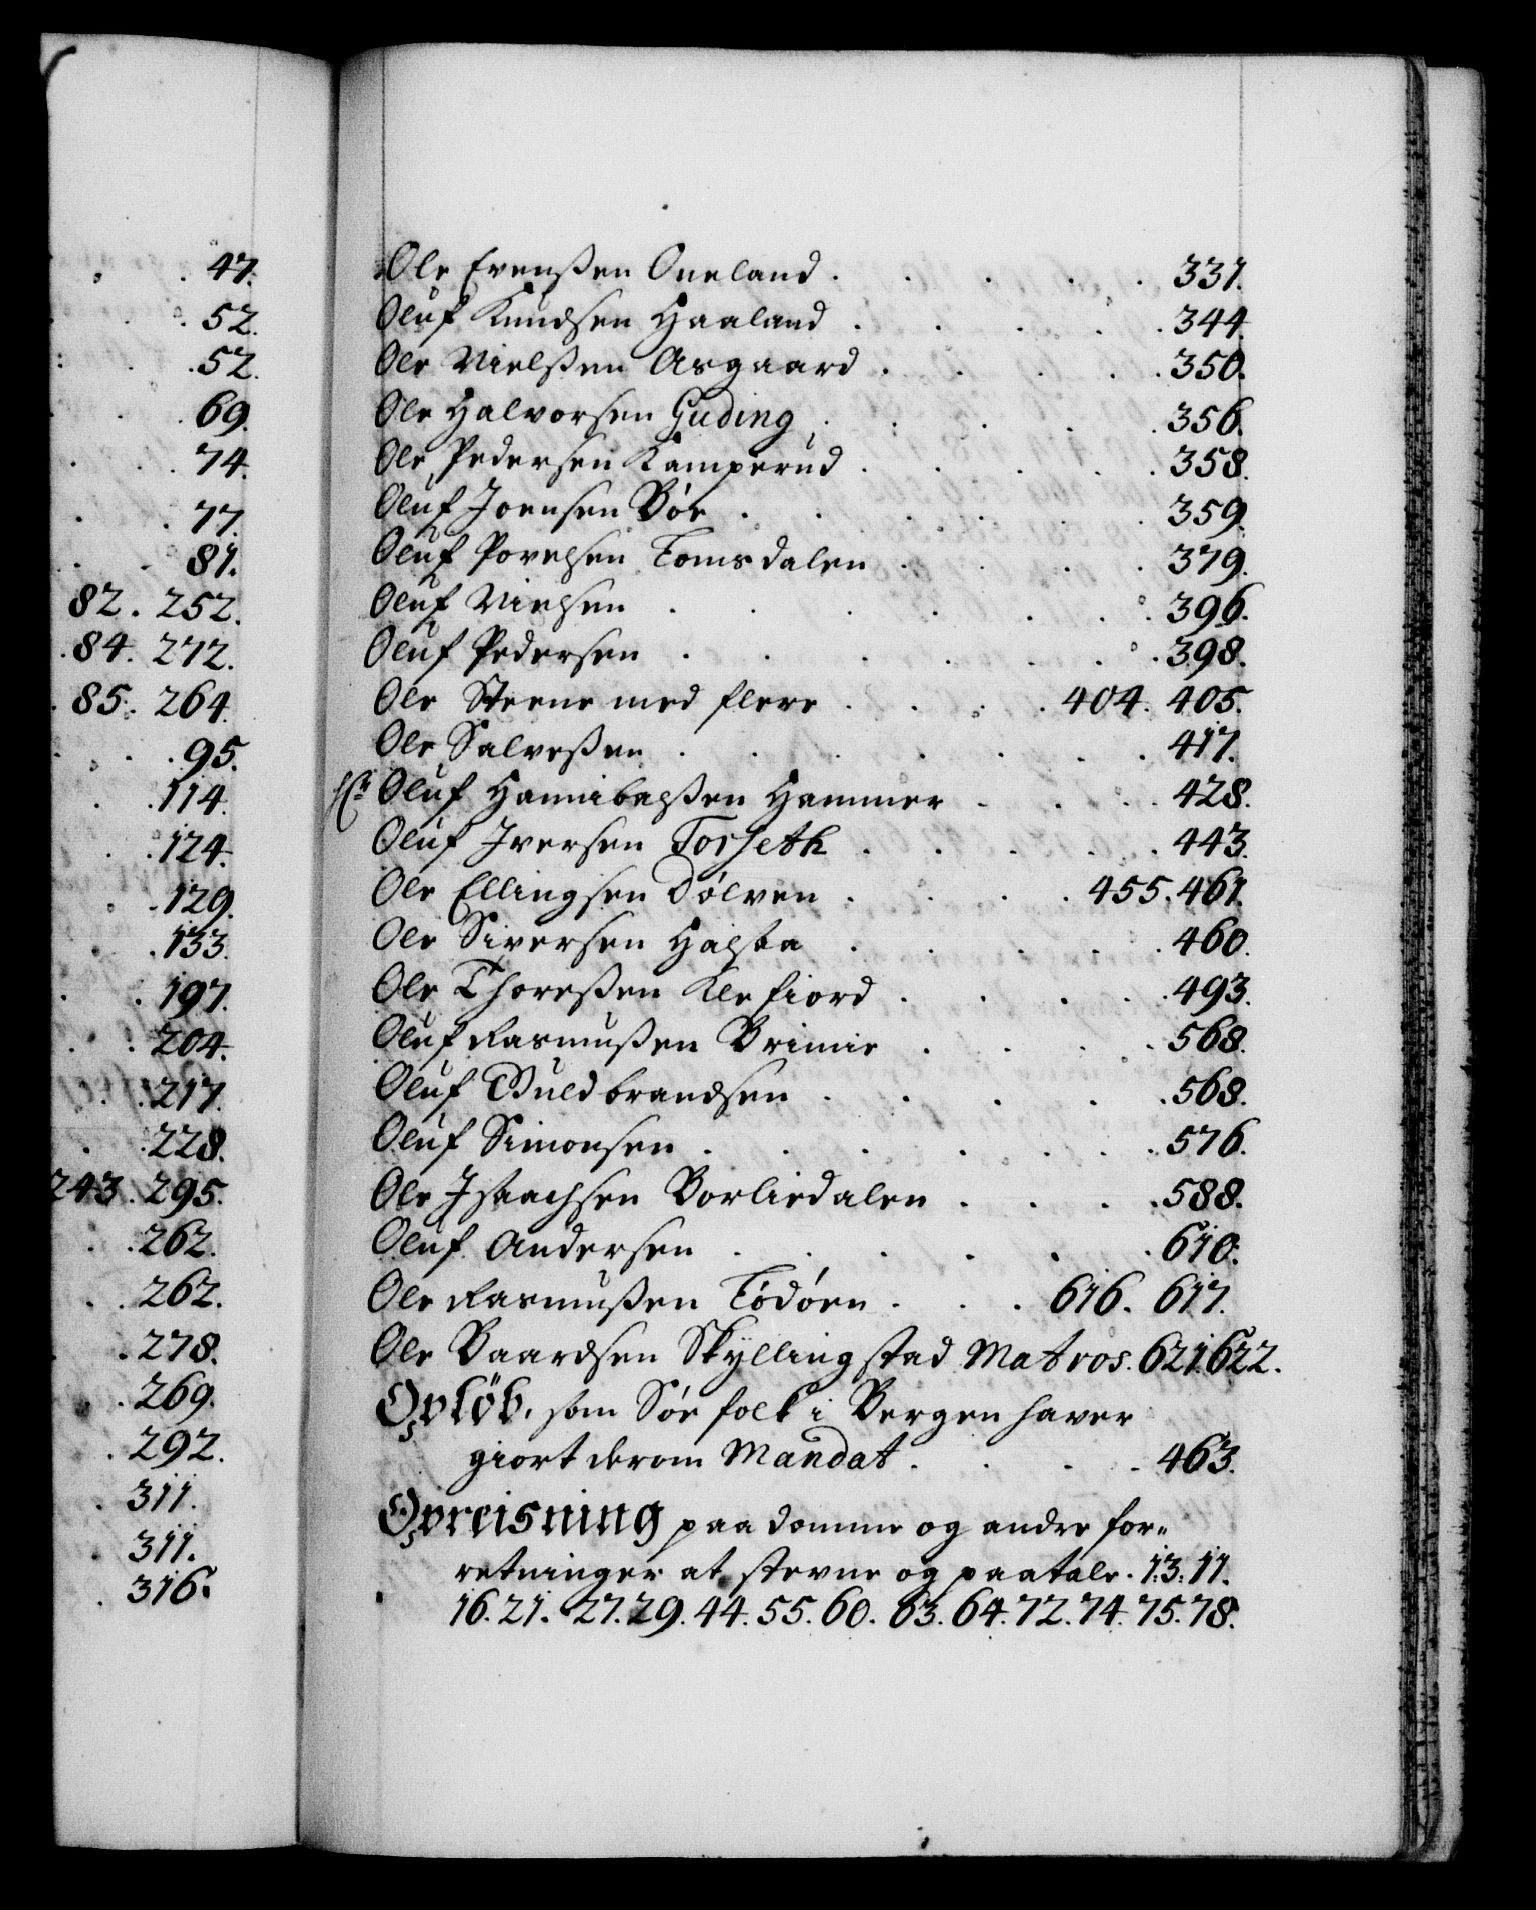 47.
52.
52.
69.
74.
77.
81.
82. 252.
84. 272.
85. 264.
95.
114.
124.
129.
133.
197.
204.
217.
228.
243. 295.
262.
262.
278.
269.
292.
311.
311.
316.
Ole Evenßen Oneland . . . . . 331.
Oluf Knudsen Haaland . . . . . 344.
Ole Nielßen Asgaard . . . . 350.
Ole Halvorsen Guding . . . . 356.
Ole Pedersen Kamperud . . . . 358.
Oluf Joensen Böe . . . . . 359.
Oluf Povelsen Tomsdalen . . . . 379.
Oluf Nielsen . . . . . . 396.
Oluf Pedersen . . . . . . 398.
Ole Steene med flere . . . . 404. 405.
Ole Salveßen . . . . . . 417.
Hr Oluf Hannibalßen Hammer . . . . 428.
Oluf Iversen Torseth . . . . 443.
Ole Ellingsen Dölven . . . . 455. 461.
Ole Siversen Halsta . . . . . 460.
Ole Thoreßen Klefiord . . . . 493.
Oluf Rasmußen Brimie . . . . 568.
Oluf Guldbrandsen . . . . . 568.
Oluf Simonsen . . . . . . 576.
Ole Isaachsen Borliedalen . . . . 588.
Oluf Andersen . . . . . . 610.
Ole Rasmußen Tödöen . . . 616. 617.
Ole Baardsen Skyllingstad Matros. 621. 622.
Oplöb, som Söe folk i Bergen haver
giort derom Mandat . . . . 463.
Opreisning paa domme og andre for-
retninger at stevne og paatale. 1. 3. 11.
16. 21. 27. 29. 44. 55. 60. 63. 64. 72. 74. 75. 78.